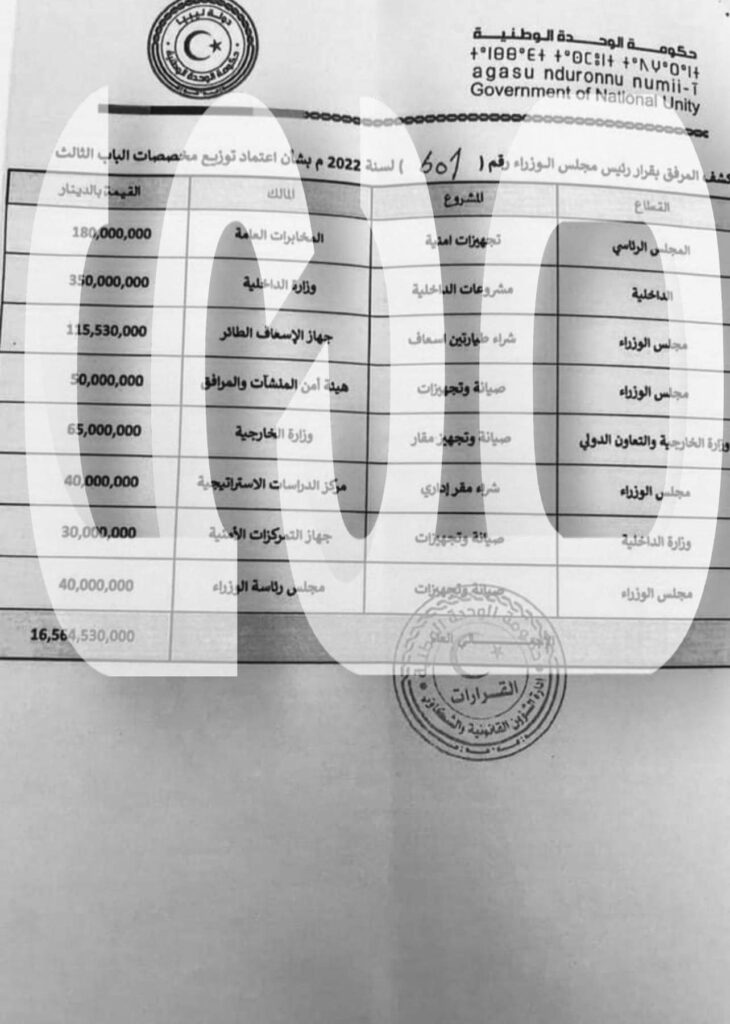 دولة ليبيا
حكومة الوحدة الوطنية
حكومة الوحدة الوطنية
agasu nduronnu numii-ī
Government of National Unity
كشف المرفق بقرار رئيس مجلس الوزراء رقم ( 601 ) لسنة 2022 م بشأن اعتماد توزيع مخصصات الباب الثالث
القطاع المشروع المالك القيمة بالدينار
المجلس الرئاسي تجهيزات امنية المخابرات العامة 180,000,000
الداخلية مشروعات الداخلية وزارة الداخلية 350,000,000
مجلس الوزراء شراء طيارتين اسعاف جهاز الإسعاف الطائر 115,530,000
مجلس الوزراء صيانة وتجهيزات هيئة أمن المنشآت والمرافق 50,000,000
وزارة الخارجية والتعاون الدولي صيانة وتجهيز مقار وزارة الخارجية 65,000,000
مجلس الوزراء شراء مقر إداري مركز الدراسات الاستراتيجية 40,000,000
وزارة الداخلية صيانة وتجهيزات جهاز التمركزات الأمنية 30,000,000
مجلس الوزراء صيانة وتجهيزات مجلس رئاسة الوزراء 40,000,000
الإجمـــالي العام 16,564,530,000
حكومة الوحدة الوطنية
القرارات
إدارة الشؤون القانونية والشكاوى